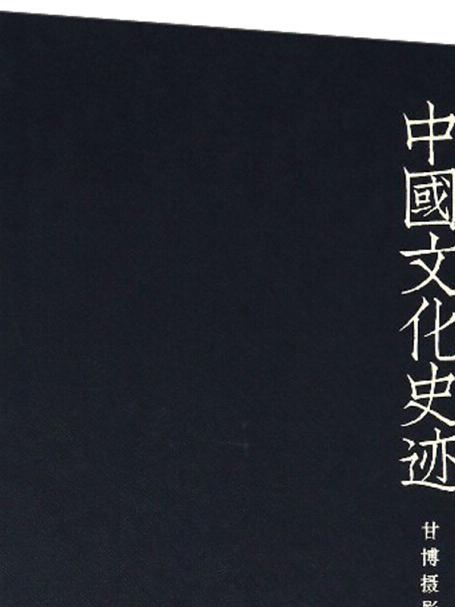 中國文化史迹
甘博摄影